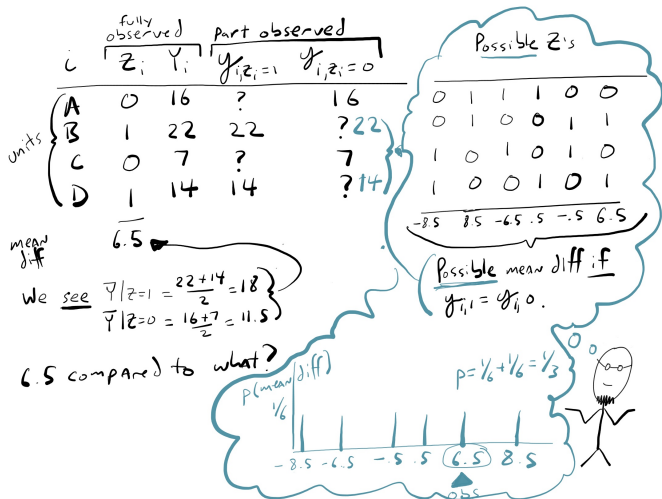 fully observed part observed
i Zi Yi yi,Zi=1 yi,Zi=0
units
A 0 16 ? 16
B 1 22 22 ? 22
C 0 7 ? 7
D 1 14 14 ? 14
mean diff 6.5
We see Y|Z=1 = 22+14/2 = 18
Y|Z=0 = 16+7/2 = 11.5
6.5 compared to what?
Possible Z's
0 1 1 1 0 0
0 1 0 0 1 1
1 0 1 0 1 0
1 0 0 1 0 1
-8.5 8.5 -6.5 .5 -.5 6.5
Possible mean diff if
yi,1 = yi,0.
p(mean diff)
1/6
p = 1/6 + 1/6 = 1/3
-8.5 -6.5 -.5 .5 6.5 8.5
obs